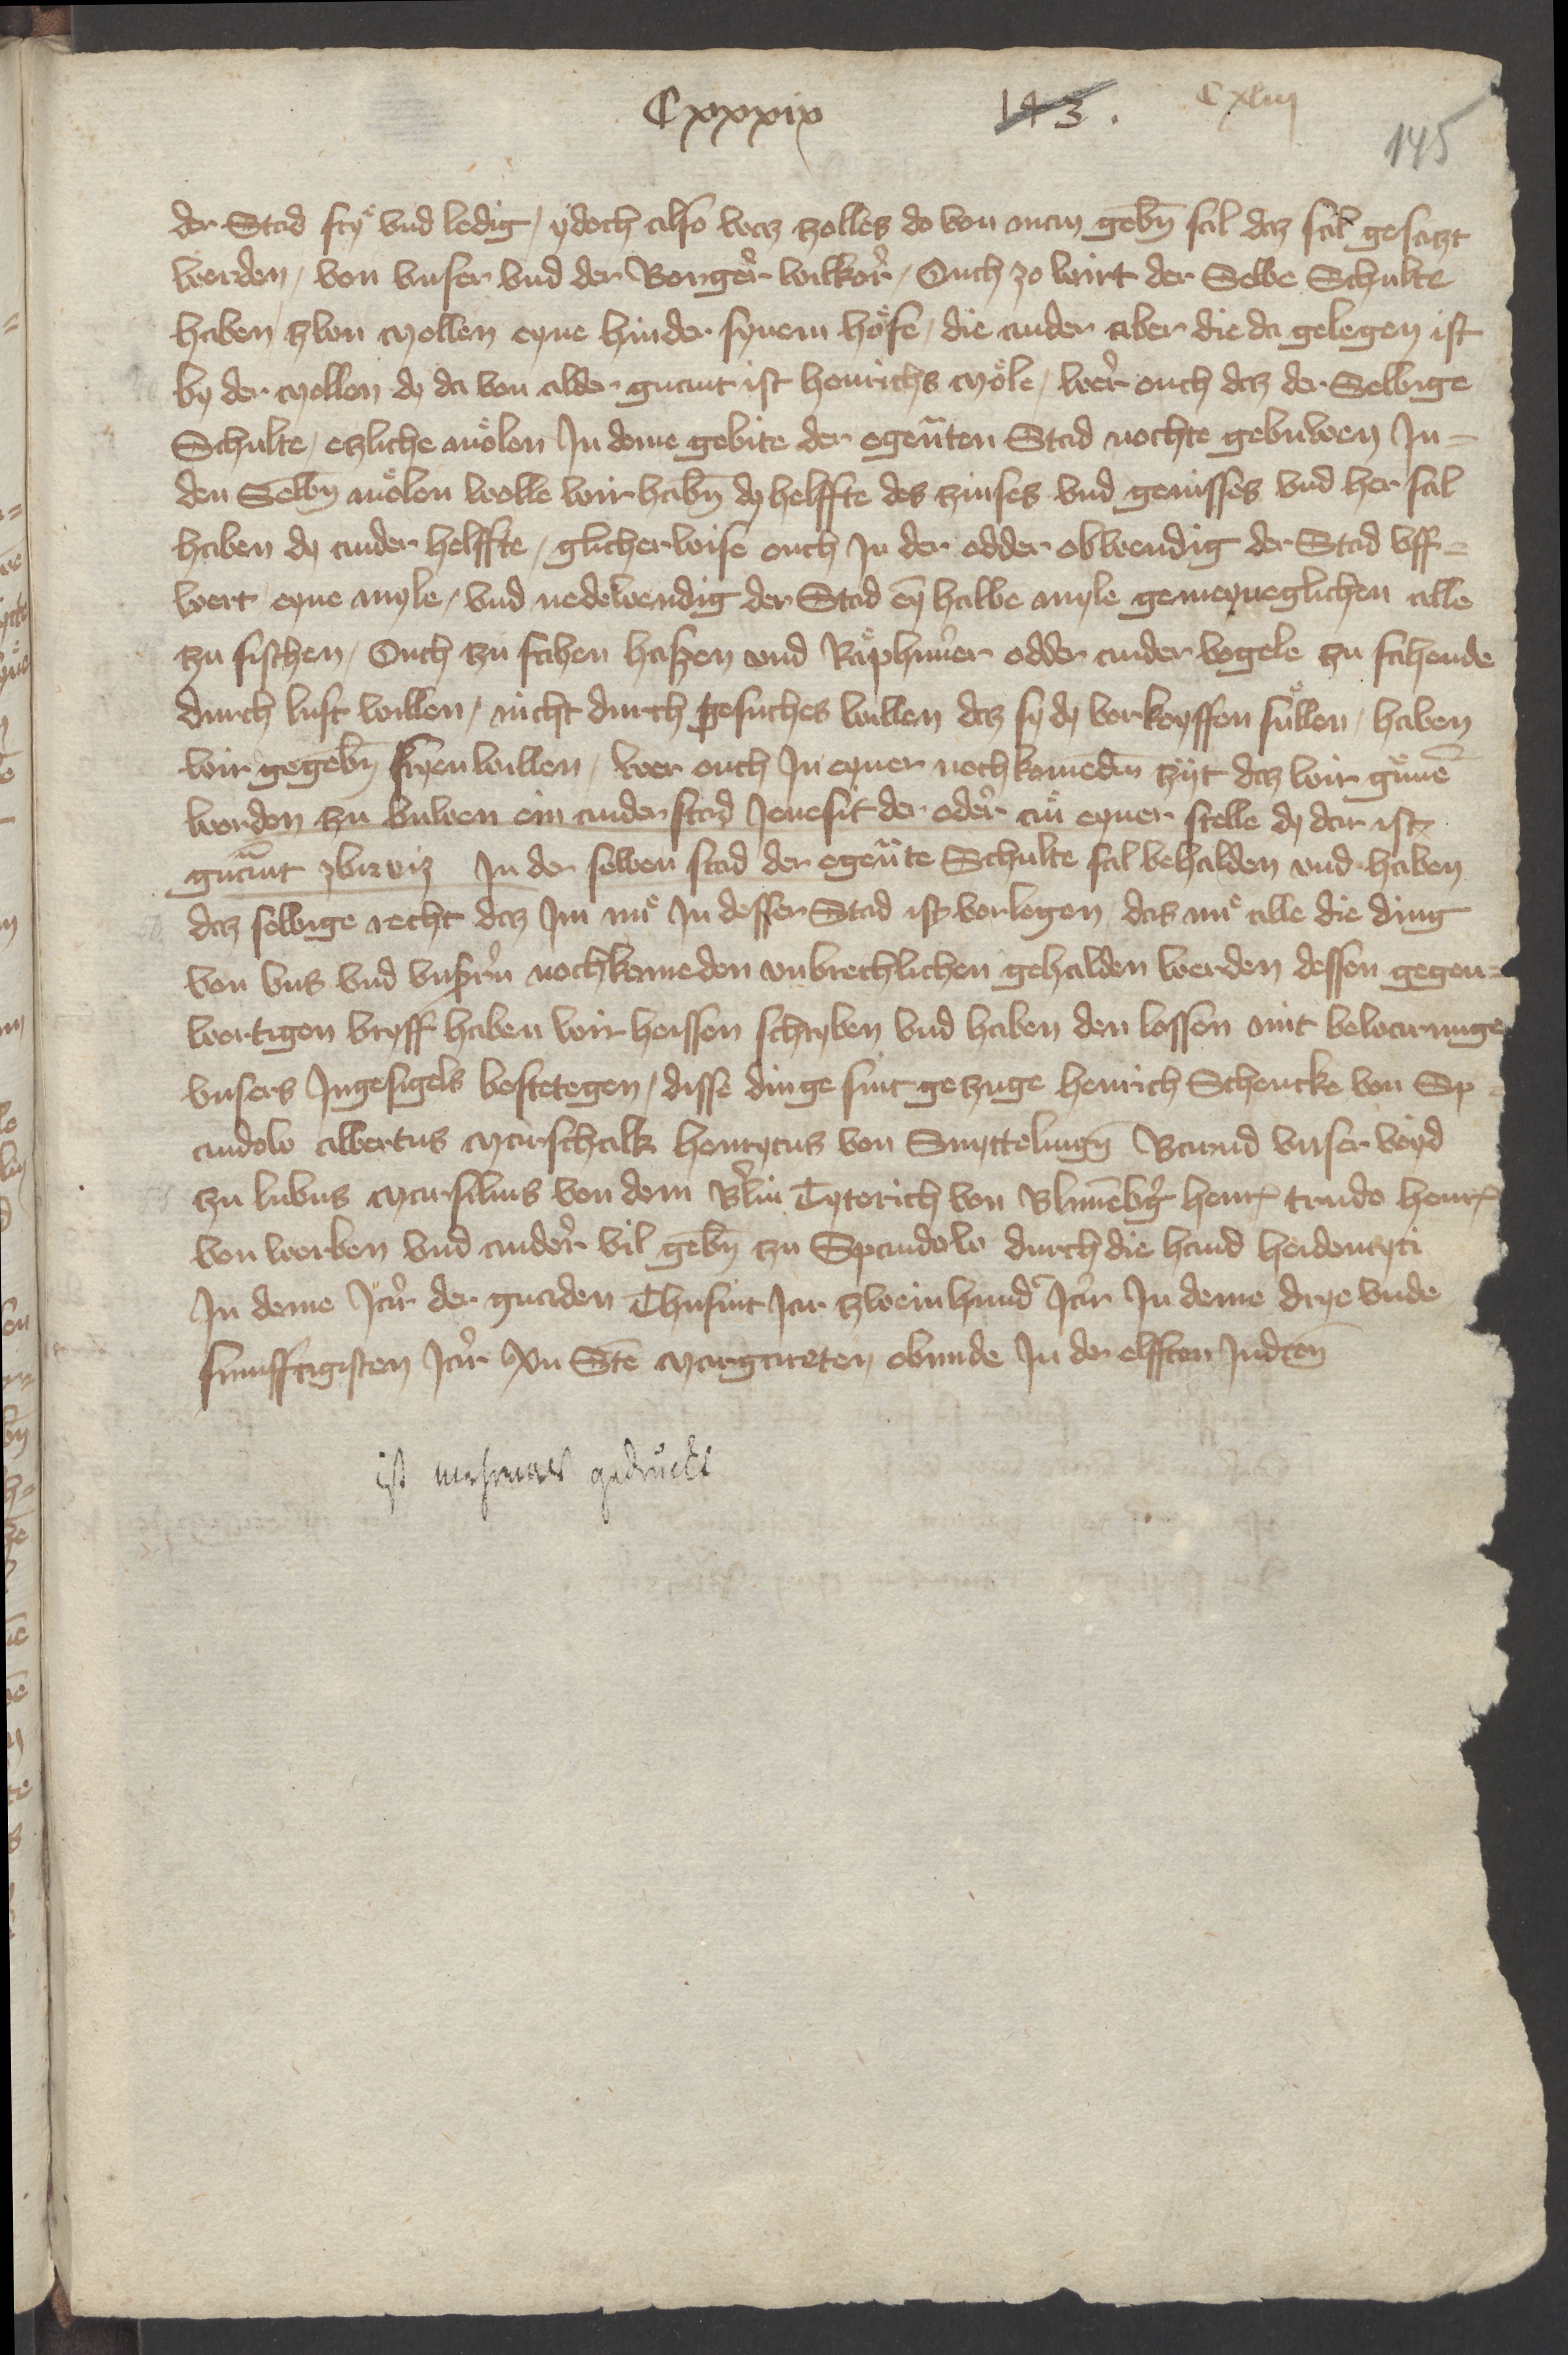 Cxxxix 143. Cxliij
145
der Stad fryͤ vnd ledig / ydoch also waz zolles do von man gebn̄ sal daz sal gesatzt
werden / von vnser vnd der Borger wilkor / Ouch zo wirt der Selbe Schulte
haben zwu Mollen eyne hinder synem höfe / die ander aber die da gelegen ist
by der Mollen dy da von alder gnant ist Henrichs Möle / wer ouch daz der Selbige
Schulte / etzliche mölen In deme gebite der egen̄ten Stad mochte gebuwen In-
den Selbn̄ mölen wolle wir habn̄ dy helffte des zinses vnd genisses vnd her sal
haben dy ander helffte / glicherwise ouch In der odder obwendig der Stad vff-
wert eyne myle / vnd nedewendig der Stad eȳ halbe myle gemeyneglichen alle
zu fischen / Ouch zu fahen haszen vnd Räphuner odder ander vogele zu fahende
durch lust willen / nicht durch gesuches willen daz sy dy vorkoyffen süllen / haben
wir gegebn̄ fryen willen / wer ouch In eyner nochkomedin zyt daz wir günnē
worden zu buwen ein ander stad Jenesit der oder an eyner stelle dy dar ist
gnant zbirwiz In der selben stad der egen̄te Schulte sal behalden vnd haben
daz selbige recht daz Im nu In desser Stad ist vorlegen das nu alle die ding
von vns vnd vnszrn nochkomeden vnbrechlichen gehalden werden dessen gegen-
wertigen bryff haben wir heissen schryben vnd haben den lossen mit bewarunge
vnsers Ingesigels bestetegen / disse dinge sint gezuge Henrich Schencke von Sp-
andow Albertus Marschalk Henrycus von Snyttelingn̄ Barnd vnser voyd
zu lubus Marsilius von dem Berlin Tyterich von Blumēbg Henr trudo Henr
von werben vnd ander vil gebn̄ zu Spandow durch die hand heidenryci
In deme Jar der gnaden Thusint Jar zweinhund Jar In deme drye vnde
funfftzigisten Jar An Ste Margareten obunde In der elfften Indcōn
ist mehrmals gedruckt